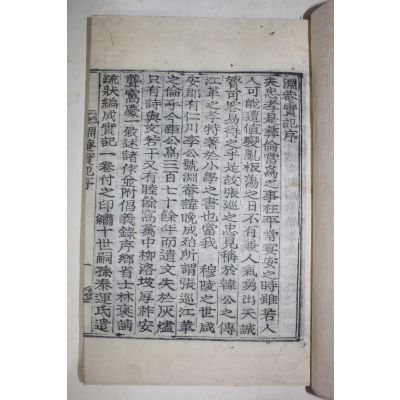 淵菴實記序
夫忠孝是彛倫當爲之事在平常宴安之時雖若人
人可能遭値變亂板蕩之日不有兼人氣勇出天誠
資可易得之乎是故張巡之忠見稱於韓公之傳
江革之孝特著於小學之書也當我 穆陵之世咸
安郡有仁川李公號淵菴諱晩成殆所謂張巡江華
之倫乎今距公爲三百七十餘年而遺文失於灰燼
只有詩與文若干又有睦餘窩萬中柳洛坡厚祚安
龔窩慶一敘述諸作並附倡義錄序鄕省士林褒請
疏狀編成實記一卷付之印繡十世嗣孫泰運氏遣
淵菴實記序
一